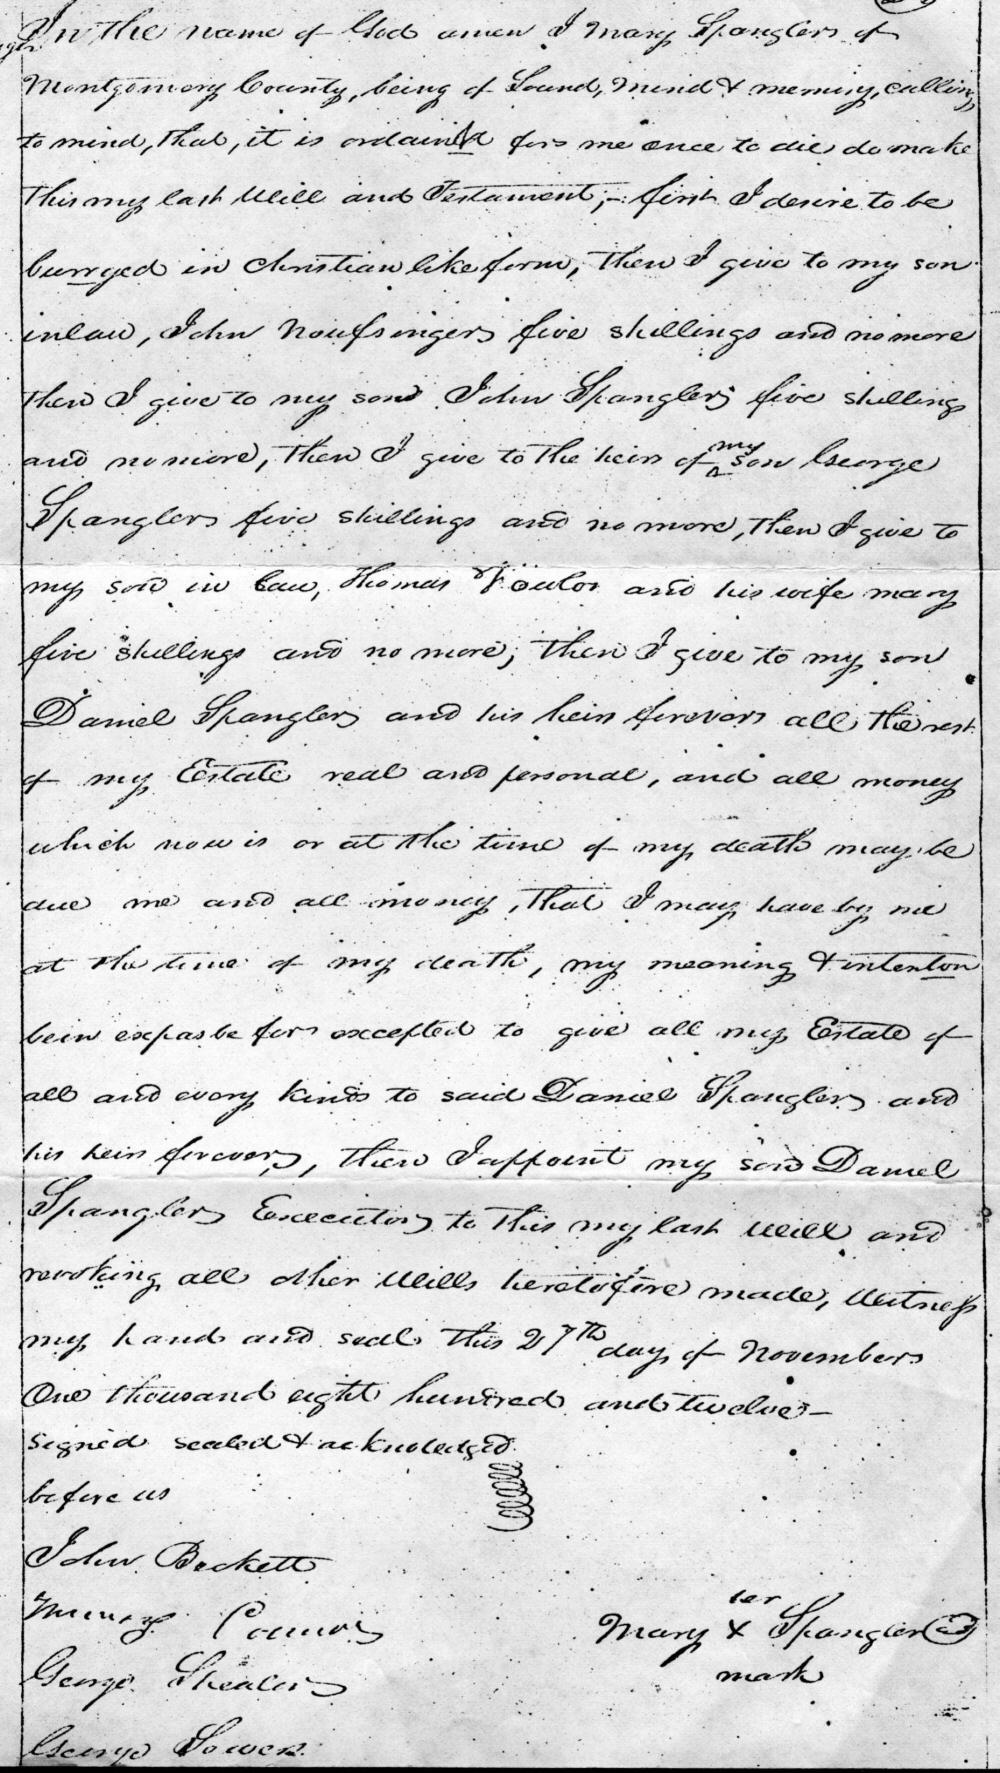 In the name of God amen I Mary Spangler of
Montgomery County, being of Sound, mind & memory, calling
to mind, that, it is ordained for me once to die do make
this my last Will and Testament;- first I desire to be
burryed in christian like form, then I give to my son
inlaw, John Noufsinger five shillings and no more
then I give to my son John Spangler five shillings
and no more, then I give to the heirs of my son George
Spangler five shillings and no more, then I give to
my son in law, Thomas and his wife mary
five shillings and no more; then I give to my son
Daniel Spangler and his heirs forever all the rest
of my Estate real and personal, and all money
which now is or at the time of my death may be
due me and all money, that I may have by me
at the time of my death, my meaning & intenton
bein expasbe for excepted to give all my Estate of
all and every kind to said Daniel Spangler and
his heirs forever, then I appoint my son Daniel
Spangler Executor to this my last Will and
revoking all other Wills heretofore made, Witness
my hand and seal this 27th day of November
One thousand eight hundred and twelve-
signed sealed & acknoledged
before us
John Beckett
Connor
George Shealer
George Sower
her
Mary X Spangler
mark